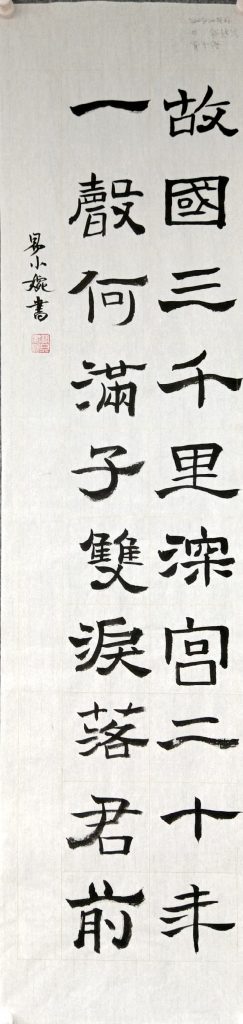 故國三千里深宮二十年
一聲何滿子雙淚落君前
易小婉書